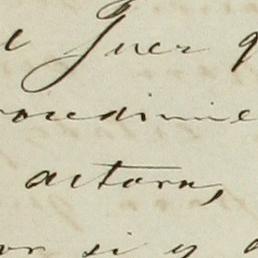 l Juez q
rocedimie
actora,
or si y a